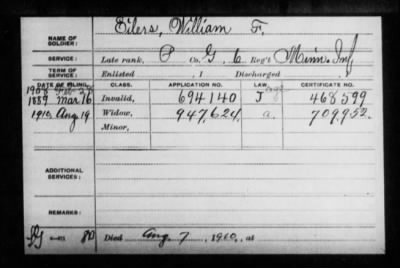 NAME OF SOLDIER: Eilers, William F.
SERVICE: Late rank, P Co. G, 6 Reg't Minn. Inf
TERM OF SERVICE: Enlisted , 1 Discharged , 1
DATE OF FILING. CLASS. APPLICATION NO. LAW. CERTIFICATE NO.
1908
1889 Mar 16 Invalid, 694140 J 468599
1910, Aug 19 Widow, 947,624 a. 709,952.
Minor,
ADDITIONAL SERVICES:
REMARKS:
80 Died Aug. 7, 1910, at